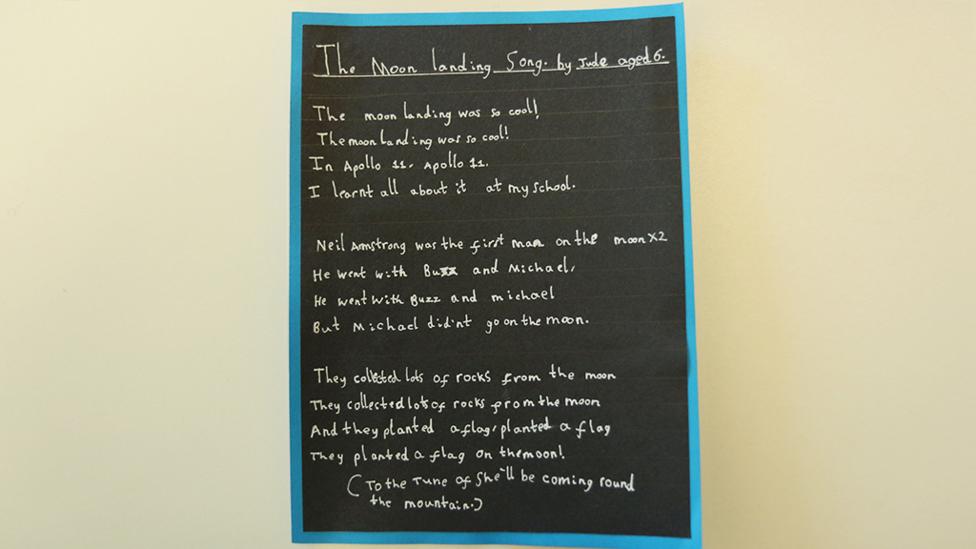 The Moon landing Song. by Jude aged 6.
The moon landing was so cool!
The moon landing was so cool!
In Apollo 11, Apollo 11.
I learnt all about it at my school.
Neil Amstrong was the first man on the moon x2
He went with Buzz and Michael,
He went with Buzz and michael
But Michael did'nt go on the moon.
They collected lots of rocks from the moon
They collected lots of rocks from the moon
And they planted a flag, planted a flag
They planted a flag on the moon!
(To the Tune of She'll be coming round
the mountain.)